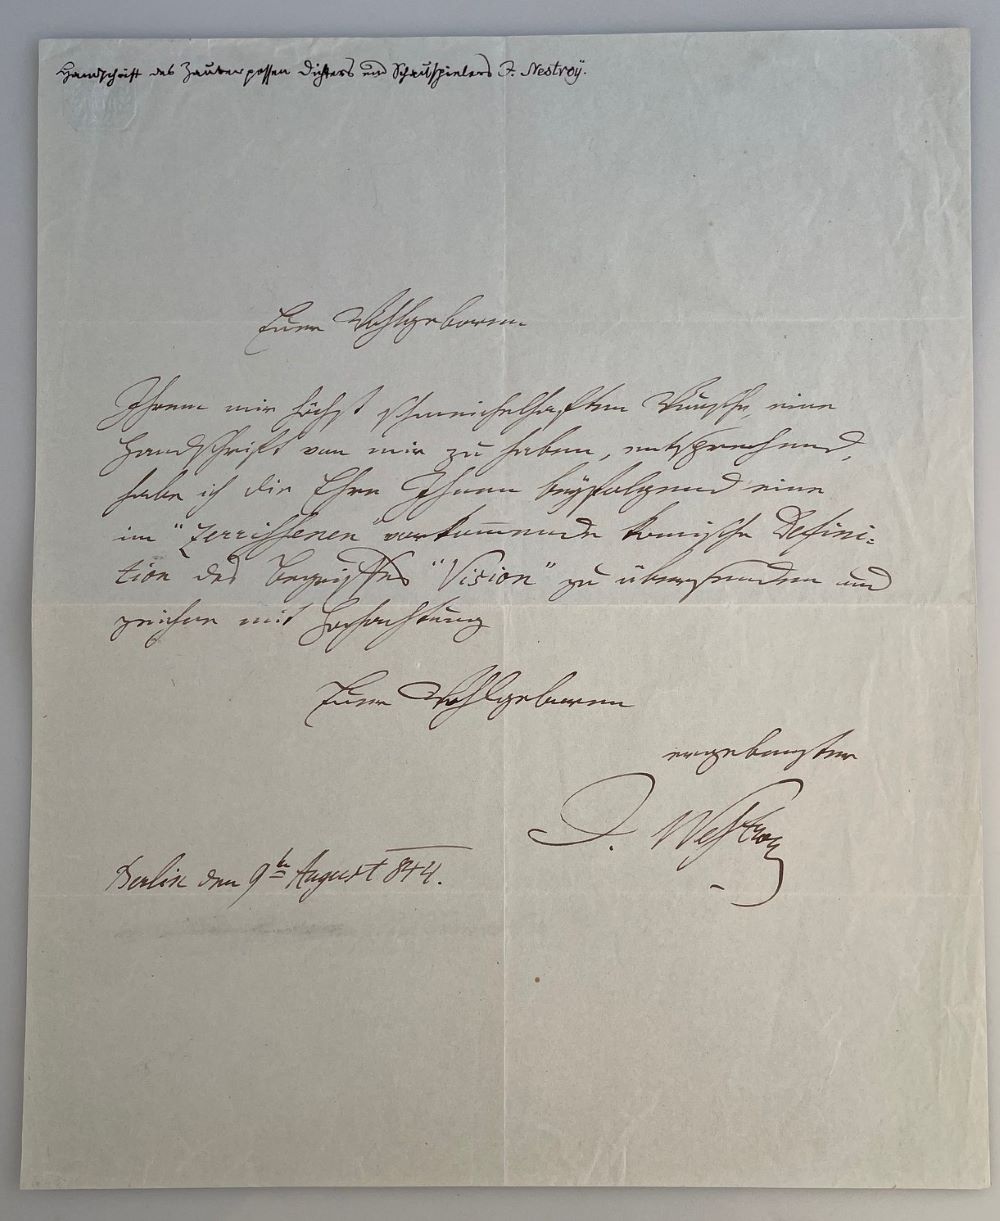 Handschrift des Zauberpossen Dichters und Schauspielers J. Nestroÿ.
Euer Wohlgeboren
Ihrem mir höchst schmeichelhaften Wunsche, eine
Handschrift von mir zu haben, entsprechend,
habe ich die Ehre Ihnen beÿfolgend eine
im "Zerrissenen" vorkom̅ende komische Defini=
tion des Begriffes "Vision" zu übersenden und
zeichne mit Hochachtung
Euer Wohlgeboren
ergebenster
J. Nestroy
Berlin den 9ten August 844.